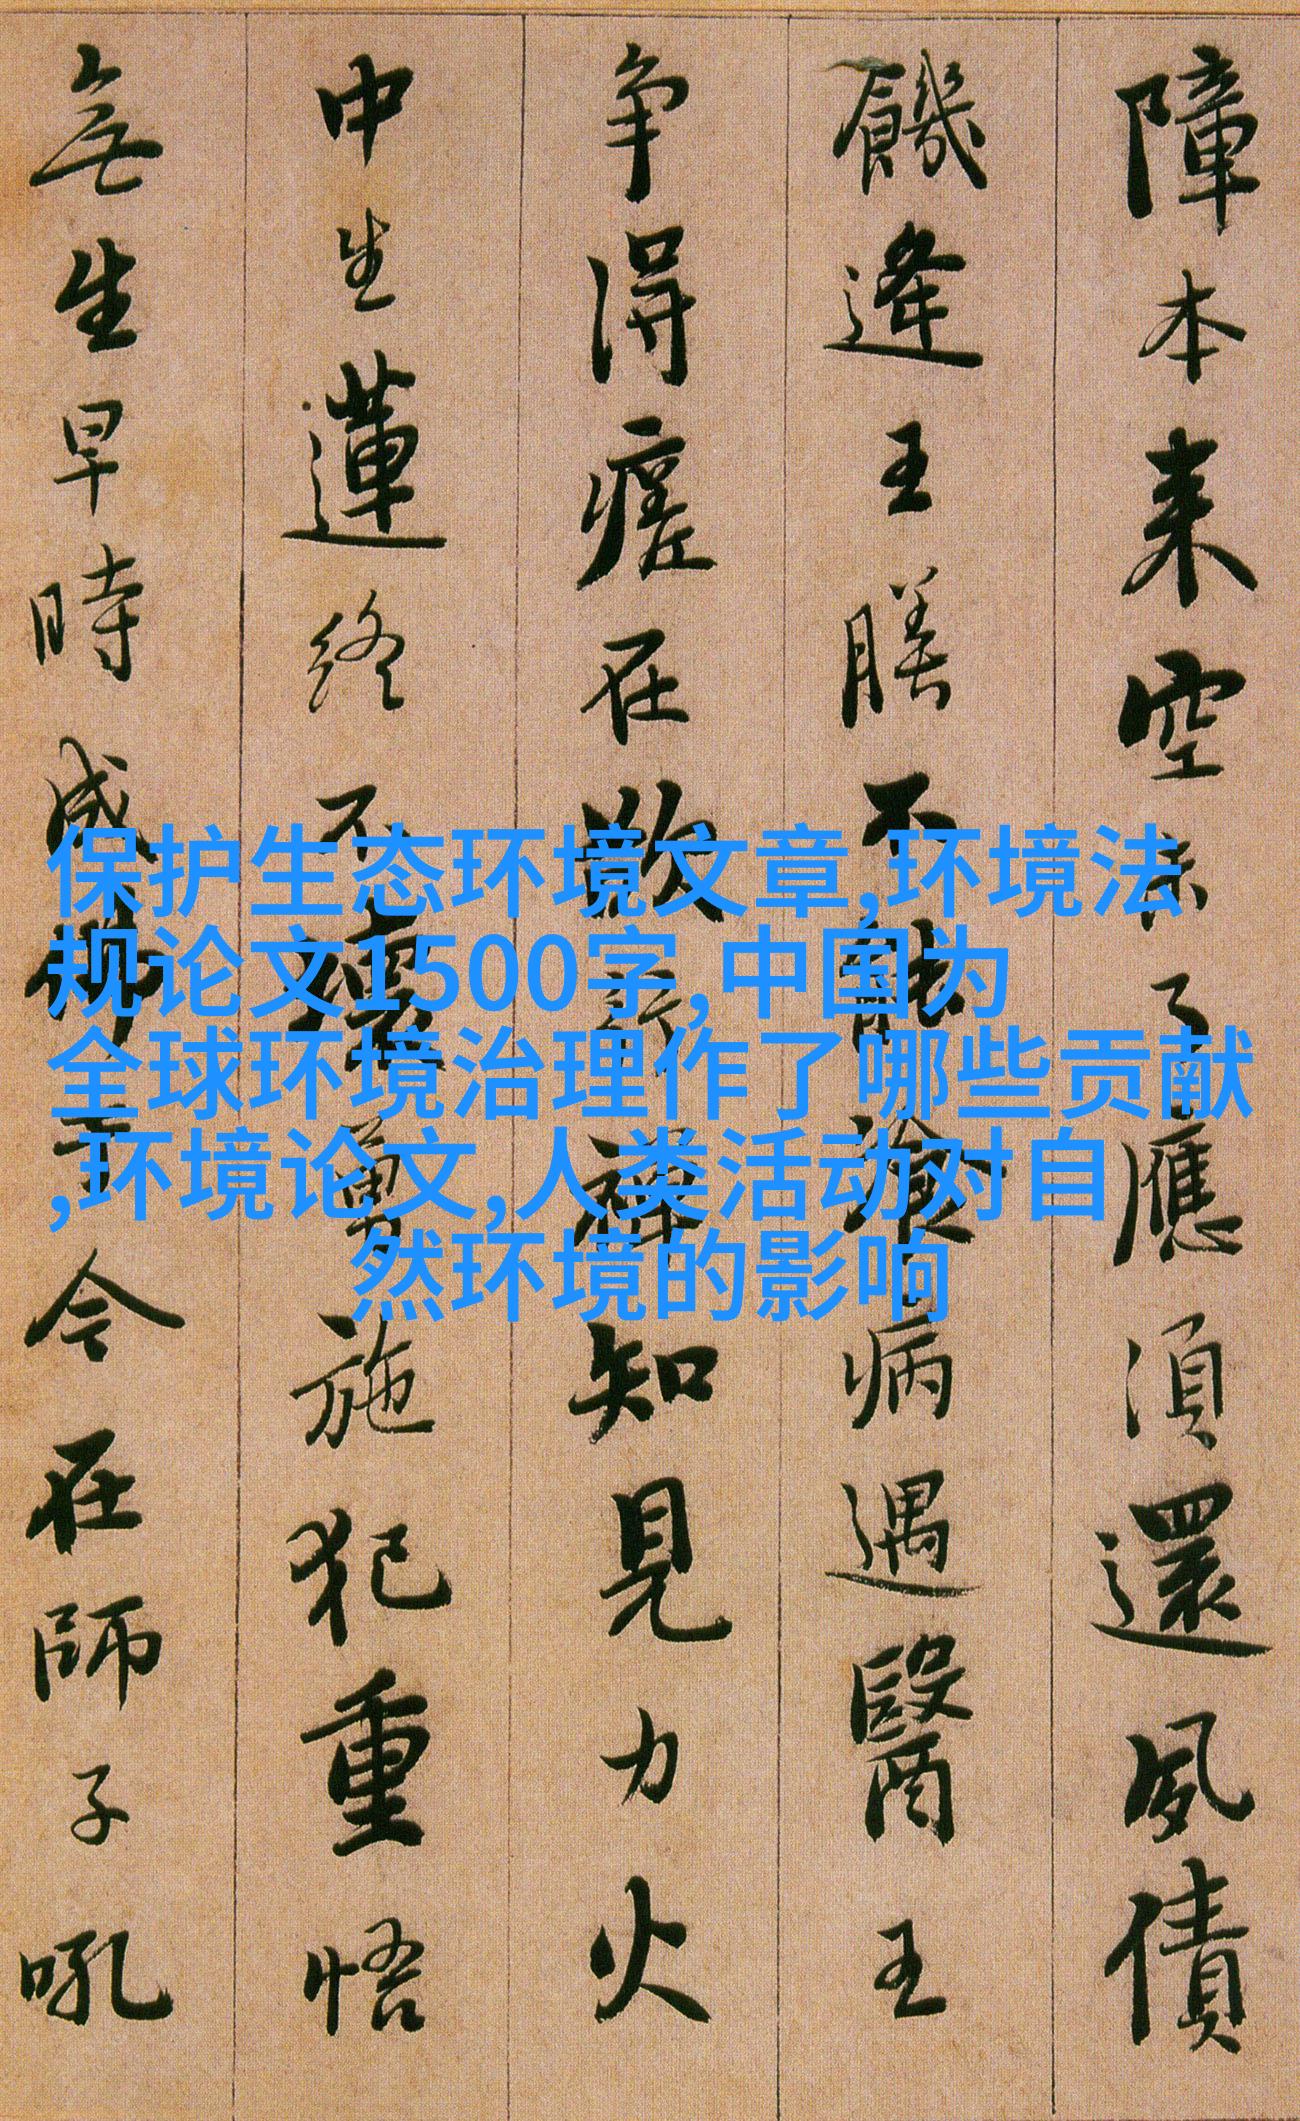 保护生态环境文章,环境法
规论文1500字,中国为
全球环境治理作了哪些贡献
,环境论文,人类活动对自
然环境的影响
障本来空未了應須還夙債
饑逢王膳不能飡病遇醫王
争得瘥在欲行禪知見力火
中生蓮終不壞勇施犯重悟
無生早時成佛于今在師子吼